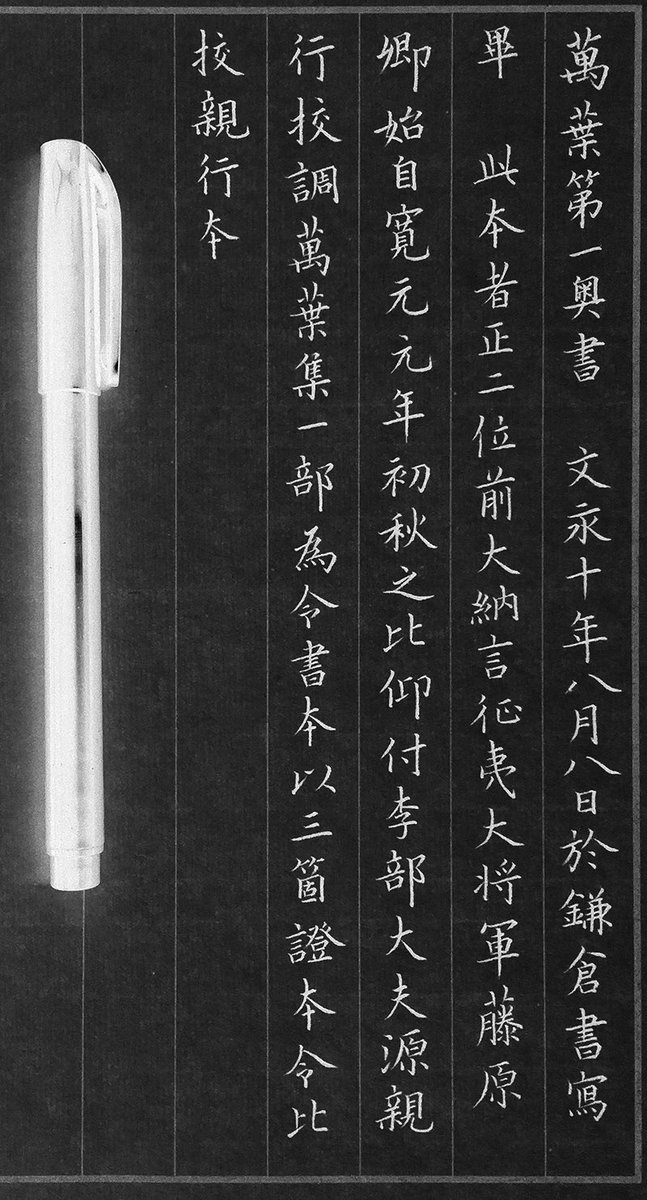 萬葉第一奥書　文永十年八月八日於鎌倉書寫
畢　此本者正二位前大納言征夷大将軍藤原
卿始自寛元元年初秋之比仰付李部大夫源親
行挍調萬葉集一部為令書本以三箇證本令比
挍親行本